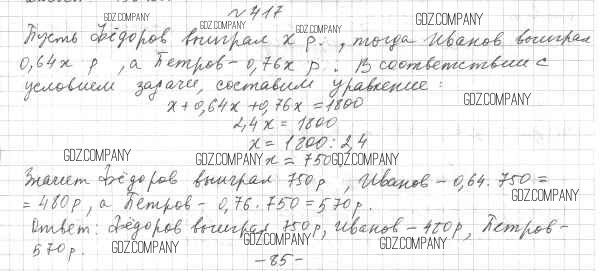 №417
Пусть Фёдоров выиграл x р., тогда Иванов выиграл
0,64x р, а Петров - 0,76x р. В соответствии с
условием задачи, составим уравнение:
x + 0,64x + 0,76x = 1800
2,4x = 1800
x = 1800 : 2,4
x = 750
Значит Фёдоров выиграл 750 р, Иванов - 0,64 · 750 =
= 480 р, а Петров - 0,76 · 750 = 570 р.
Ответ: Фёдоров выиграл 750 р, Иванов - 480 р, Петров -
570 р.
-85-
GDZ.COMPANY
GDZ.COMPANY
GDZ.COMPANY
GDZ.COMPANY
GDZ.COMPANY
GDZ.COMPANY
GDZ.COMPANY
GDZ.COMPANY
GDZ.COMPANY
GDZ.COMPANY
GDZ.COMPANY
GDZ.COMPANY